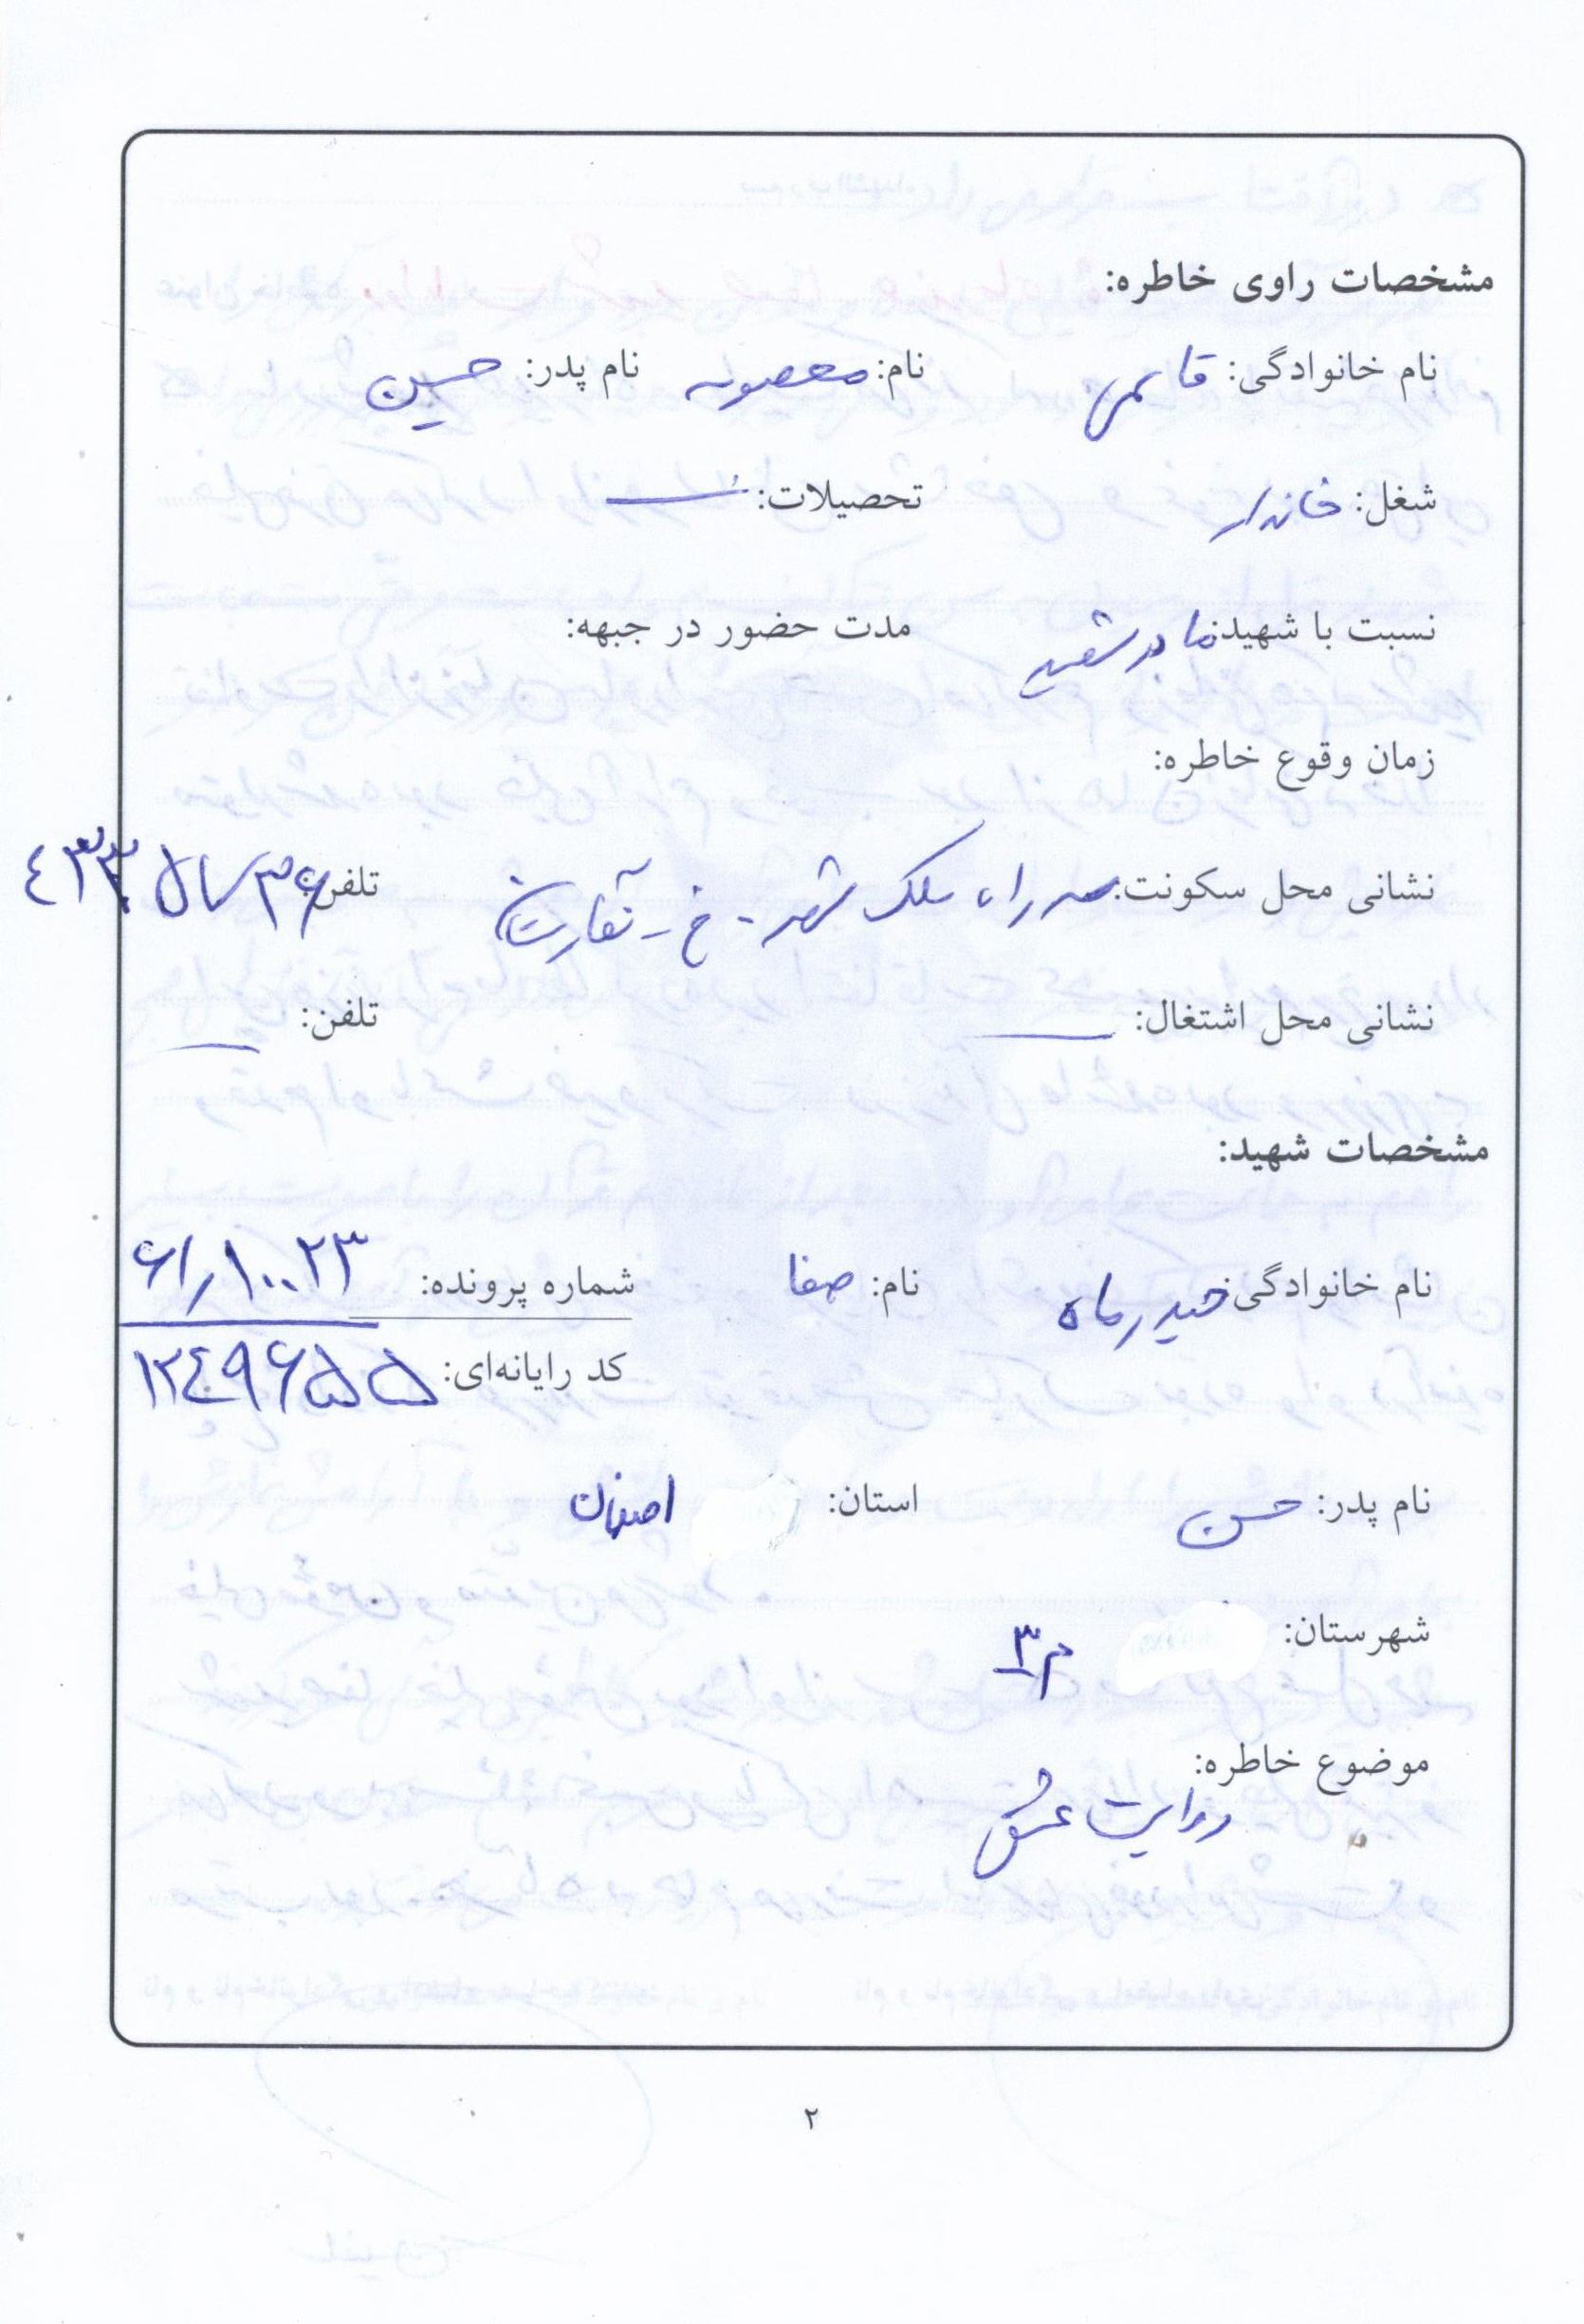 مشخصات راوی خاطره:
نام خانوادگی: قاسمی نام: معصومه نام پدر: حسین
شغل: خانه‌دار تحصیلات: —
نسبت با شهید: مادر شهید مدت حضور در جبهه:
زمان وقوع خاطره:
نشانی محل سکونت: سه راه ملک شهر - خ - تلفن:
نشانی محل اشتغال: — تلفن: —
مشخصات شهید:
نام خانوادگی: حیدر ماه نام: صفا شماره پرونده: ۶۱/۱۰۰۲۳
کد رایانه‌ای: ۱۲۴۹۶۵۵
نام پدر: حسن استان: اصفهان
شهرستان: م۳
موضوع خاطره:
روایت عشق
۲